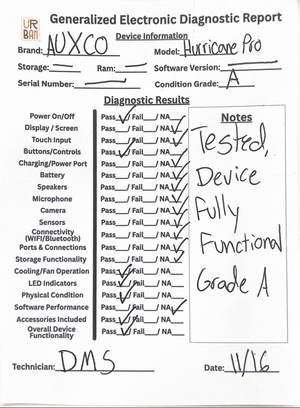 UR
BAN
Generalized Electronic Diagnostic Report
Device Information
Brand: AUXCO Model: Hurricane Pro
Storage: — Ram: — Software Version: —
Serial Number: — Condition Grade: A
Diagnostic Results
Power On/Off Pass ✓/ Fail__/ NA__
Display / Screen Pass__/ Fail__/ NA ✓
Touch Input Pass__/ Fail__/ NA ✓
Buttons/Controls Pass ✓/ Fail__/ NA__
Charging/Power Port Pass__/ Fail__/ NA ✓
Battery Pass__/ Fail__/ NA ✓
Speakers Pass__/ Fail__/ NA ✓
Microphone Pass__/ Fail__/ NA ✓
Camera Pass__/ Fail__/ NA ✓
Sensors Pass__/ Fail__/ NA ✓
Connectivity
(WIFI/Bluetooth) Pass__/ Fail__/ NA ✓
Ports & Connections Pass__/ Fail__/ NA ✓
Storage Functionality Pass__/ Fail__/ NA ✓
Cooling/Fan Operation Pass ✓/ Fail__/ NA__
LED Indicators Pass ✓/ Fail__/ NA__
Physical Condition Pass ✓/ Fail__/ NA__
Software Performance Pass__/ Fail__/ NA ✓
Accessories Included Pass ✓/ Fail__/ NA__
Overall Device
Functionality Pass ✓/ Fail__/ NA__
Notes
Tested,
Device
Fully
Functional
Grade A
Technician: DMS Date: 11/16